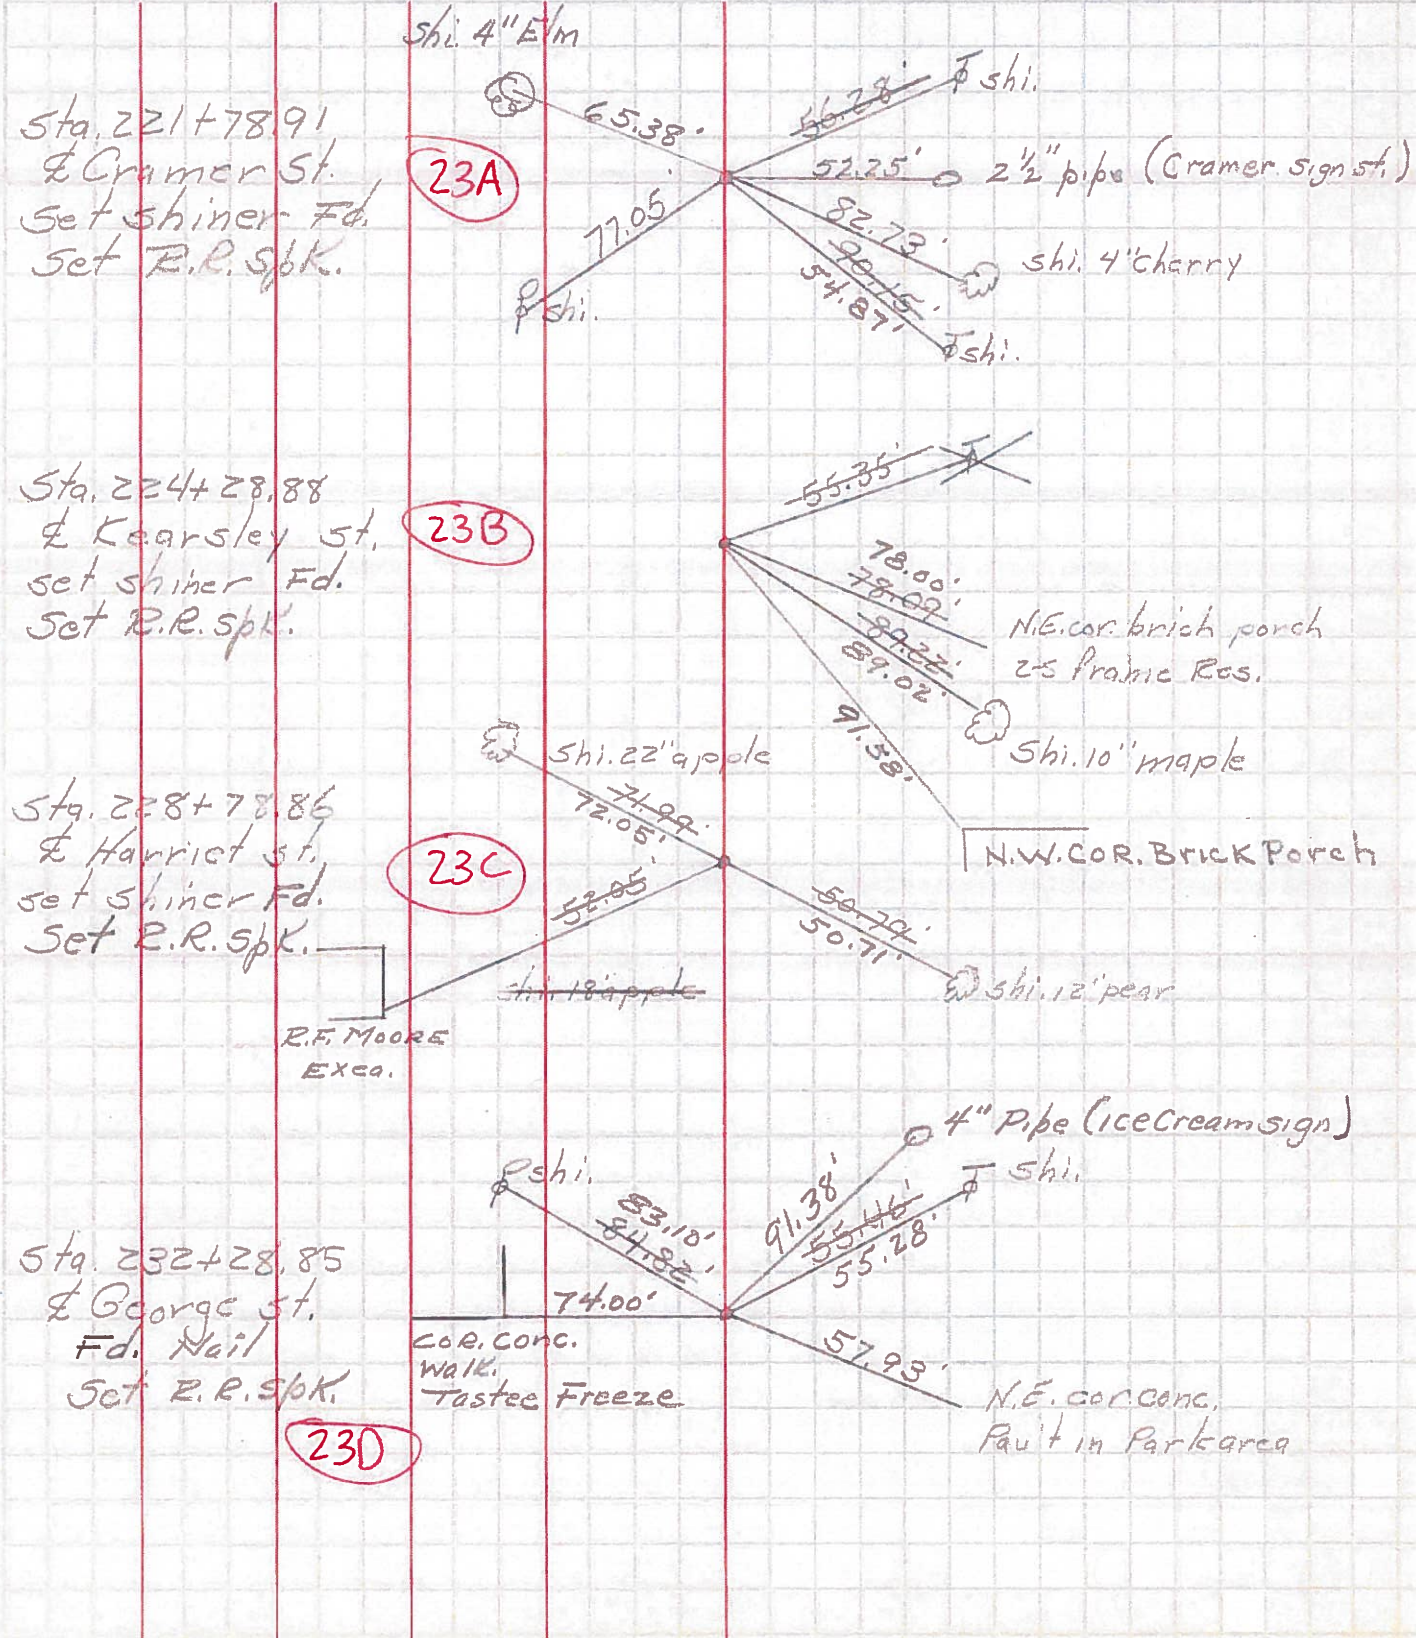 Shi. 4" Elm
Sta. 221+78.91
℄ Cramer St.
Set shiner Fd.
Set R.R. Spk.
23A
65.38'
77.05'
shi.
56.28'
shi.
52.25'
2½" pipe (Cramer sign st.)
82.73'
shi. 4" cherry
90.15'
54.87'
shi.
Sta. 224+28.88
℄ Kearsley st.
set shiner Fd.
Set R.R. spk.
23B
55.35'
78.00'
78.09'
N.E. cor. brick porch
2-S Frame Res.
89.22'
89.02'
Shi. 10" maple
91.58'
N.W. COR. BRICK PORCH
Sta. 228+78.86
℄ Harriet st.
set shiner Fd.
Set R.R. spk.
23C
Shi. 22" apple
71.99'
72.05'
52.05'
shi. 18" apple
R.F. MOORE
EXCA.
50.79'
50.71'
Shi. 12" pear
Sta. 232+28.85
℄ George st.
Fd. Nail
Set R.R. spk.
23D
shi.
83.10'
84.82'
74.00'
COR. CONC.
Walk.
Tastee Freeze
91.38'
4" Pipe (ice Cream sign)
55.46'
55.28'
Shi.
57.93'
N.E. cor. conc.
in Park area